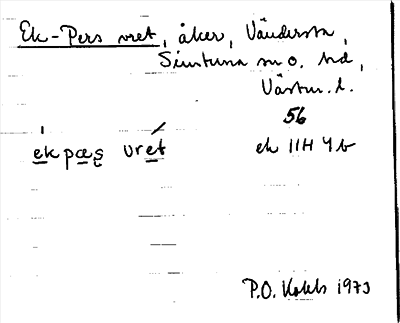 Ek-Pers vret, åker, Vändersta,
Simtuna sn o. hd,
Västm. l.
56
ekpæs vret ek 11H 4b
P.O. 1973